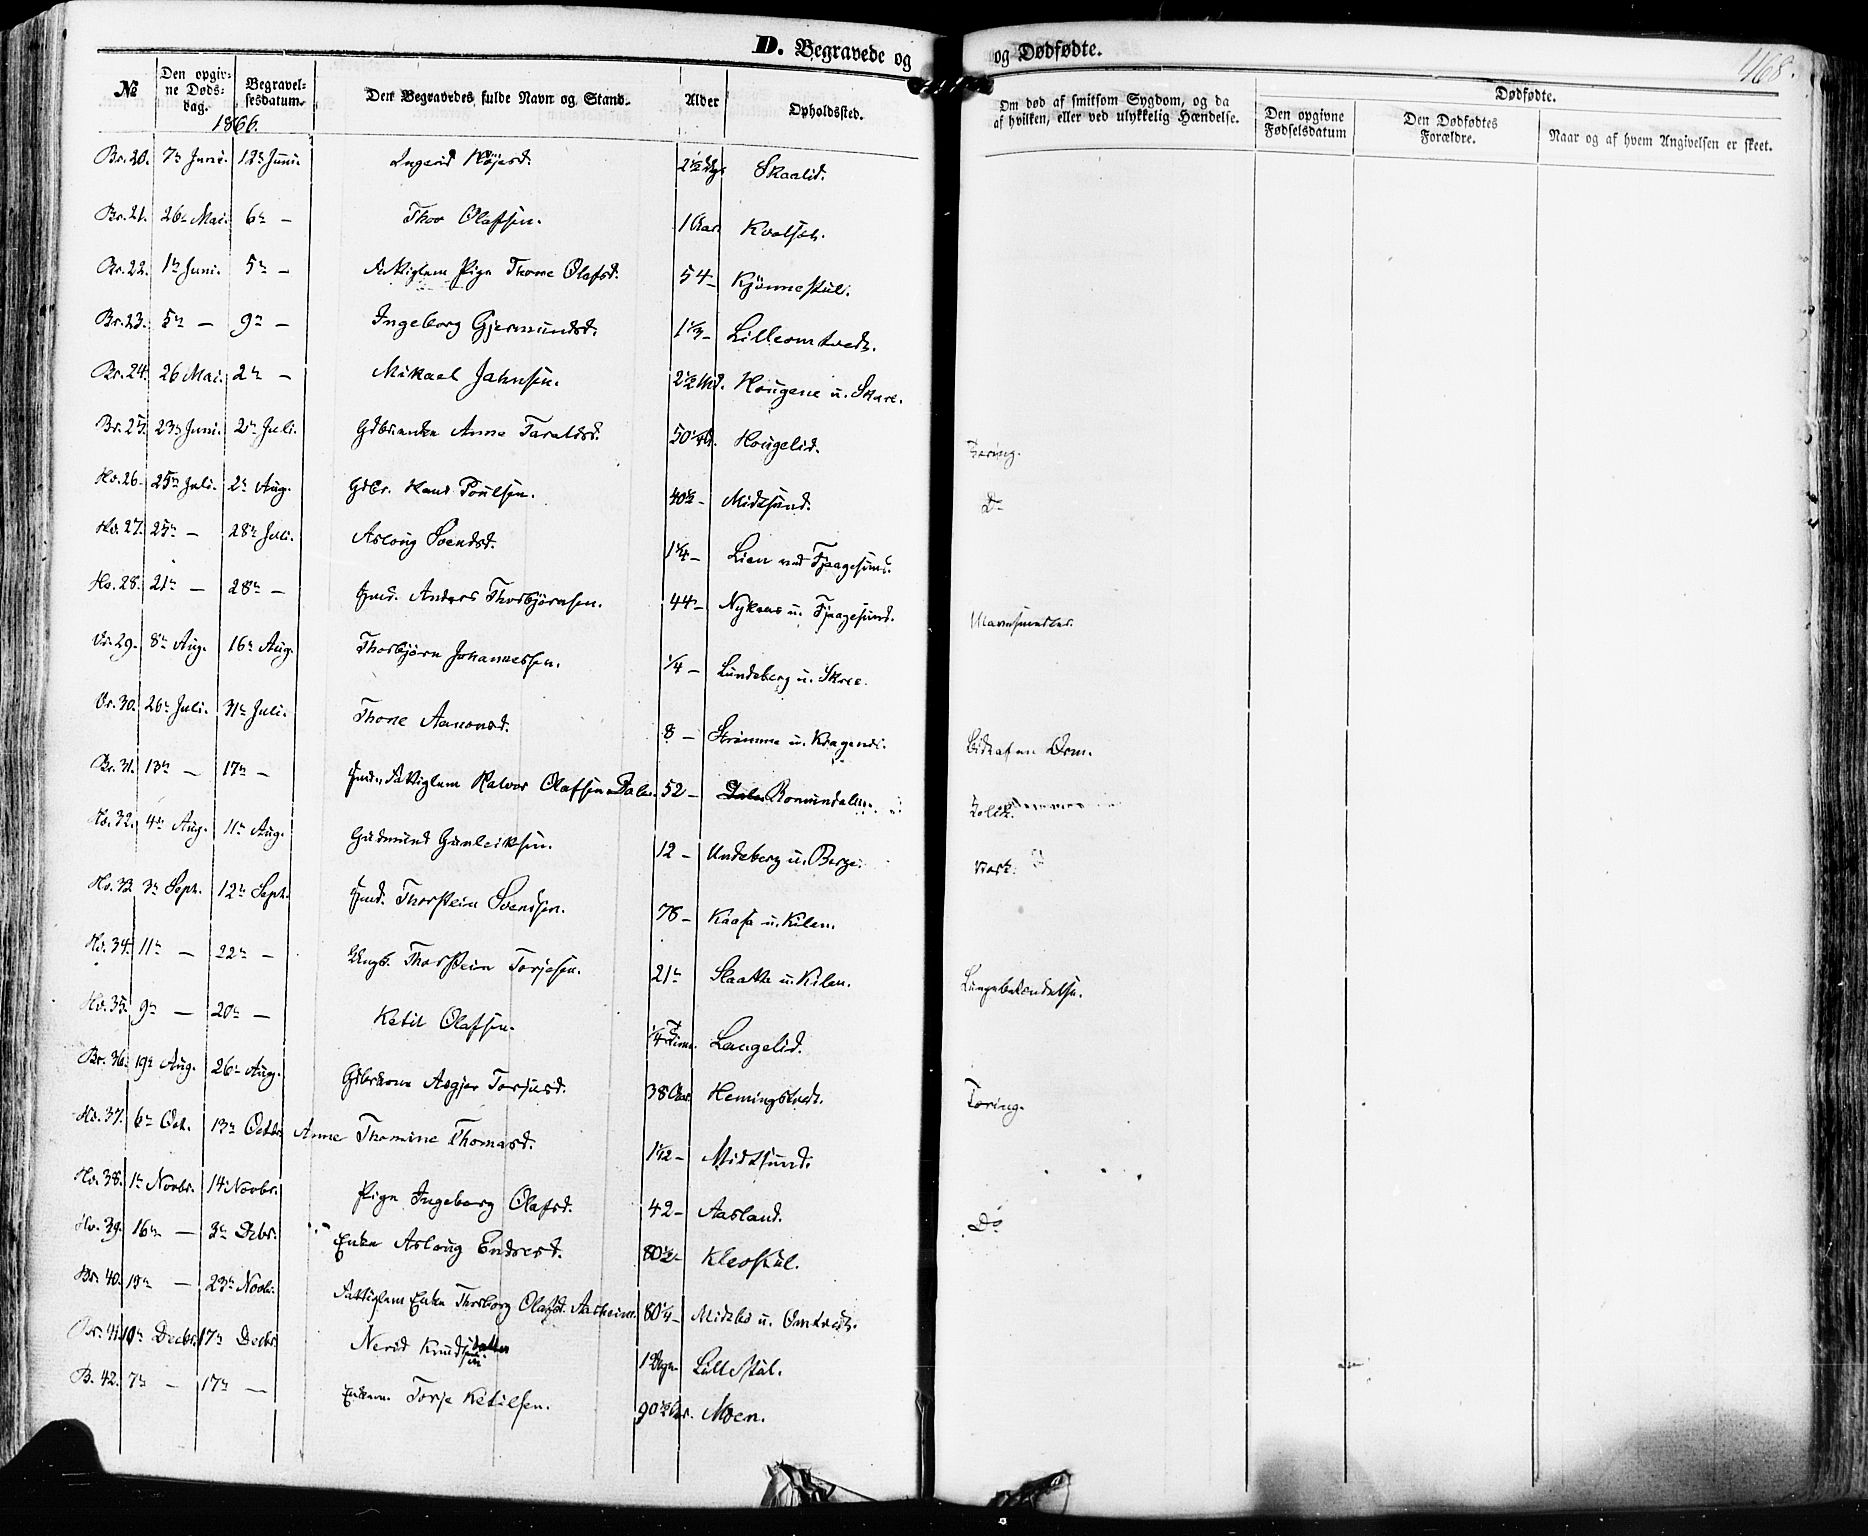 D. Begravede og
og Dødfødte.
468.
No
Den opgivne Dødsdag.
Begravelsesdatum.
Den Begravedes fulde Navn og Stand.
Alder
Opholdssted.
Om død af smitsom Sygdom, og da af hvilken, eller ved ulykkelig Hændelse.
Dødfødte.
Den opgivne Fødselsdatum
Den Dødfødtes Forældre.
Naar og af hvem Angivelsen er skeet.
1866.
Br. 20. 7de Juni. 12te Juni. Ingerid 2 1/2 Skaalid.
Br. 21. 26de Mai. 6te — Thor Olafsen. 1 Aar Kvalsøt.
Br. 22. 1ste Juni. 5te — Fattiglem Pige Thone Olafsd. 54 — Kjønnestul.
Br. 23. 5te — 9de — Ingeborg Gjermundsd. 1 1/3 — Lilleomtvedt.
Br. 24. 26 Mai. 2de — Mikael Jahnsen. 2 1/2 Md. Hougene u. Skare.
Br. 25. 23de Juni. 2den Juli. Gdbrenke Anne Taraldsd. 50 Hougelid. Tæring.
Hv. 26. 25de Juli. 2den Aug. Gdbr. Hans Poulsen. 40 1/2 — Midtsund. Do
Hv. 27. 25de — 28de Juli. Asloug Svendsd. 1 1/4 — Lien ved Fjaagesund.
Hv. 28. 21de — 28de — Hmd. Anders Thorbjørnsen. 44 — Nykaas u. Fjaagesund.
Vr. 29. 8de Aug. 16de Aug. Thorbjørn Johannessen. 1/4 — Lundeberg u. Skree.
Vr. 30. 26de Juli. 31te Juli. Thone Aanonsd. 8 — Strømme u. Bidt af en Orm.
Br. 31. 13de — 17de — Fattiglem Halvor Olafsen Dale. 52 — Romundalen.
Hv. 32. 4de Aug. 11te Aug. Gudmund Gunleiksen. 12 — Undeberg u. Berge.
Hv. 33. 3de Septr. 12te Septr. Hmd. Thorstein Svendsen. 78 — Kaasa u. Kilen.
Hv. 34. 11te — 22de — Ungk. Thorstein Torjesen. 21 — Slaatta u. Kilen. Lungebetændelse.
Hv. 35. 9de — 20de — Ketil Olafsen. 1/4 Time. Langelid.
Br. 36. 19de Aug. 26de Aug. Gdbrkone Asgjer Torjusd. 38 Aar Hemingstvedt. Tæring.
Hv. 37. 6te Oct. 13de Octbr. Anne Thomine Thomasd. 1 1/12 — Midtsund.
Hv. 38. 1ste Novbr. 14 Novbr. Pige Ingeborg Olafsd. 42 — Aasland. Do
Hv. 39. 16de — 3de Dcbr. Enke Aslaug Endresd. 80 1/2 — Kleostul.
Br. 40. 19de — 23de Novbr. Fattiglem Enke Thorborg Olafsd. Aasheim. 80 1/4 — Midtbø u. Omtvedt.
Br. 41. 10de Decbr. 17de Decbr. Nerid Knudsdatter 1 Døgn Lillestul.
B. 42. 7de — 17de — Enkem. Torje Ketilsen. 90 1/2 Aar. Moen.